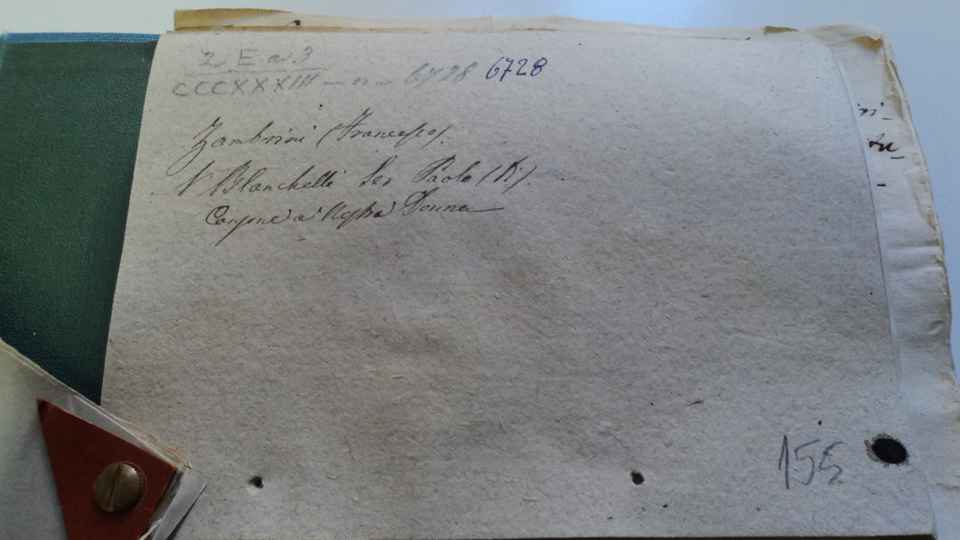 2 E a 3
CCCXXXIII - n - 6728 6728
Zambrini (Francesco).
V Blanchelli Ser Paolo (Di).
Canzone a Nostra Donna
155